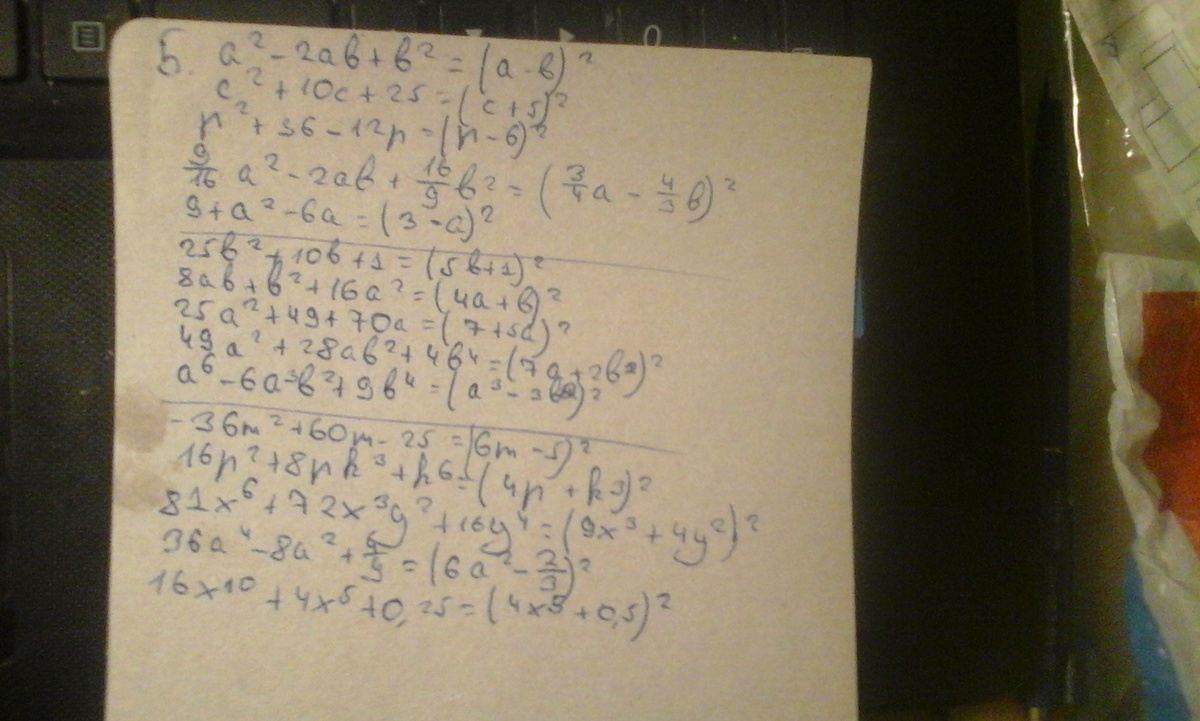 5. a² - 2ab + b² = (a - b)²
c² + 10c + 25 = (c + 5)²
p² + 36 - 12p = (p - 6)²
9/16 a² - 2ab + 16/9 b² = (3/4 a - 4/3 b)²
9 + a² - 6a = (3 - a)²
25b² + 10b + 1 = (5b + 1)²
8ab + b² + 16a² = (4a + b)²
25a² + 49 + 70a = (7 + 5a)²
49a² + 28ab² + 4b⁴ = (7a + 2b²)²
a⁶ - 6a³b² + 9b⁴ = (a³ - 3b²)²
-36m² + 60m - 25 = (6m - 5)²
16p² + 8pk³ + k⁶ = (4p + k³)²
81x⁶ + 72x³y² + 16y⁴ = (9x³ + 4y²)²
36a⁴ - 8a² + 4/9 = (6a² - 2/3)²
16x¹⁰ + 4x⁵ + 0,25 = (4x⁵ + 0,5)²